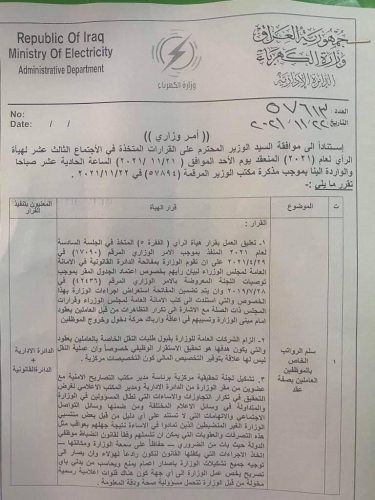 Republic Of Iraq
Ministry Of Electricity
Administrative Department
جمهورية العراق
وزارة الكهرباء
الدائرة الإدارية
وزارة الكهرباء
No:
Date: / /
العدد ٥٧٦١٣
التاريخ ٢٠٢١/١١/٢٢
(( أمر وزاري ))
إستناداً الى موافقة السيد الوزير المحترم على القرارات المتخذة في الاجتماع الثالث عشر لهيأة
الرأي لعام (٢٠٢١) المنعقد يوم الأحد الموافق (٢٠٢١/١١/٢١) الساعة الحادية عشر صباحا
والواردة الينا بموجب مذكرة مكتب الوزير المرقمة (٥٧٨٩٤) في ٢٠٢١/١١/٢٢
تقرر ما يلي :-
ت
الموضوع
قرار الهيأة
المعنيون بتنفيذ
القرار
١
سلم الرواتب
الخاص
بالموظفين
العاملين بصفة
عقد
القرار :
١- تعليق العمل بقرار هيأة الراي ( الفقرة ٥ ) المتخذ في الجلسة السادسة
لعام ٢٠٢١ المنفذ بموجب الامر الوزاري المرقم (١٧٠٩٠) في
٢٠٢١/٤/٢٩ على ان تقوم الوزارة بمفاتحة الدائرة القانونية في الامانة
العامة لمجلس الوزراء لبيان رايهم بخصوص اعتماد الجدول المقر بموجب
توصيات اللجنة المعروضة بالامر الوزاري المرقم (٤٢٤٣٦) في
٢٠١٩/٧/٢٨ وان يتم تضمين المفاتحة استعراض إجراءات الوزارة بهذا
الخصوص والتي استندت الى كتب الامانة العامة لمجلس الوزراء وقرارات
المجلس ذات الصلة مع الاشارة الى تكرار التظاهرات من قبل العاملين بعقود
امام مبنى الوزارة وتسببهم في اعاقة وارباك حركة دخول وخروج الموظفين
٢. الزام الشركات العامة للوزارة بقبول طلبات النقل الخاصة بالعاملين بعقود
والتي يكون هدفها هو تحقيق الاستقرار الوظيفي خصوصا وان عملية النقل
ليس لها علاقة بتوفير التخصيص المالي كون التخصيصات مركزية .
٣. تشكيل لجنة تحقيقية مركزية برئاسة مدير مكتب التصاريح الامنية مع
عضوين من مقر الوزارة من الدائرة الادارية ومدير المكتب الاعلامي لغرض
التحقيق في تكرار التجاوزات والاساءات التي تطال المسؤولين في الوزارة
والمتداولة في وسائل الاعلام المختلفة ومن ضمنها وسائل التواصل
الاجتماعي والاتهامات التي لا تستند على اي دليل من قبل بعض منتسبي
الوزارة الغير المنضبطين الذين تمادوا في الاساءة نتيجة جهلهم بعواقب مثل
هذه التصرفات والعقوبات التي يمكن ان تشملهم وفقا لقانون انضباط موظفي
الدولة حيث بات من الضروري – حفاظا على سمعة الوزارة ومكانتها –
اتخاذ الاجراءات التي يكفلها القانون لتكون رادعا لهؤلاء وان يصار الى
توجيه جميع تشكيلات الوزارة باصدار اعمام يمنع ويحاسب من يدلي باي
تصريح يخص عمل الوزارة الى اي جهة كون هناك قنوات اعلامية رسمية
مخولة من قبل الوزارة لتتحمل مسؤولية صحة ودقة المعلومة .
الدائرة الادارية
+
الدائرة القانونية